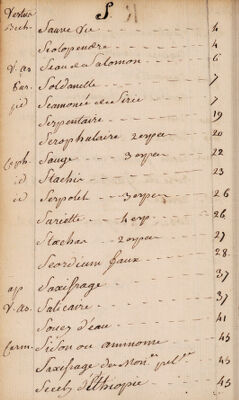 Vertus S
Bech Sauve Vie 4
Scolopendre 4
V-as Sceau de Salomon 6
Pur- Soldanelle 7
jid Scamonée de Sirie 7
Serpentaire 19
Scrophulaire 2 espec 20
Ceph Sauge 3 espec 22
id Stachis 23
id Serpolet 3 espec 26
Sariette 4 esp. 26
Stæchas 2 espec 27
Scordium faux 28
ap Saxifrage 37
V-as Salicaire 41
Souez d'eau 43
Carm Sison ou ammome 45
Saxifrage des 45
Seseli d'Ethiopie 45